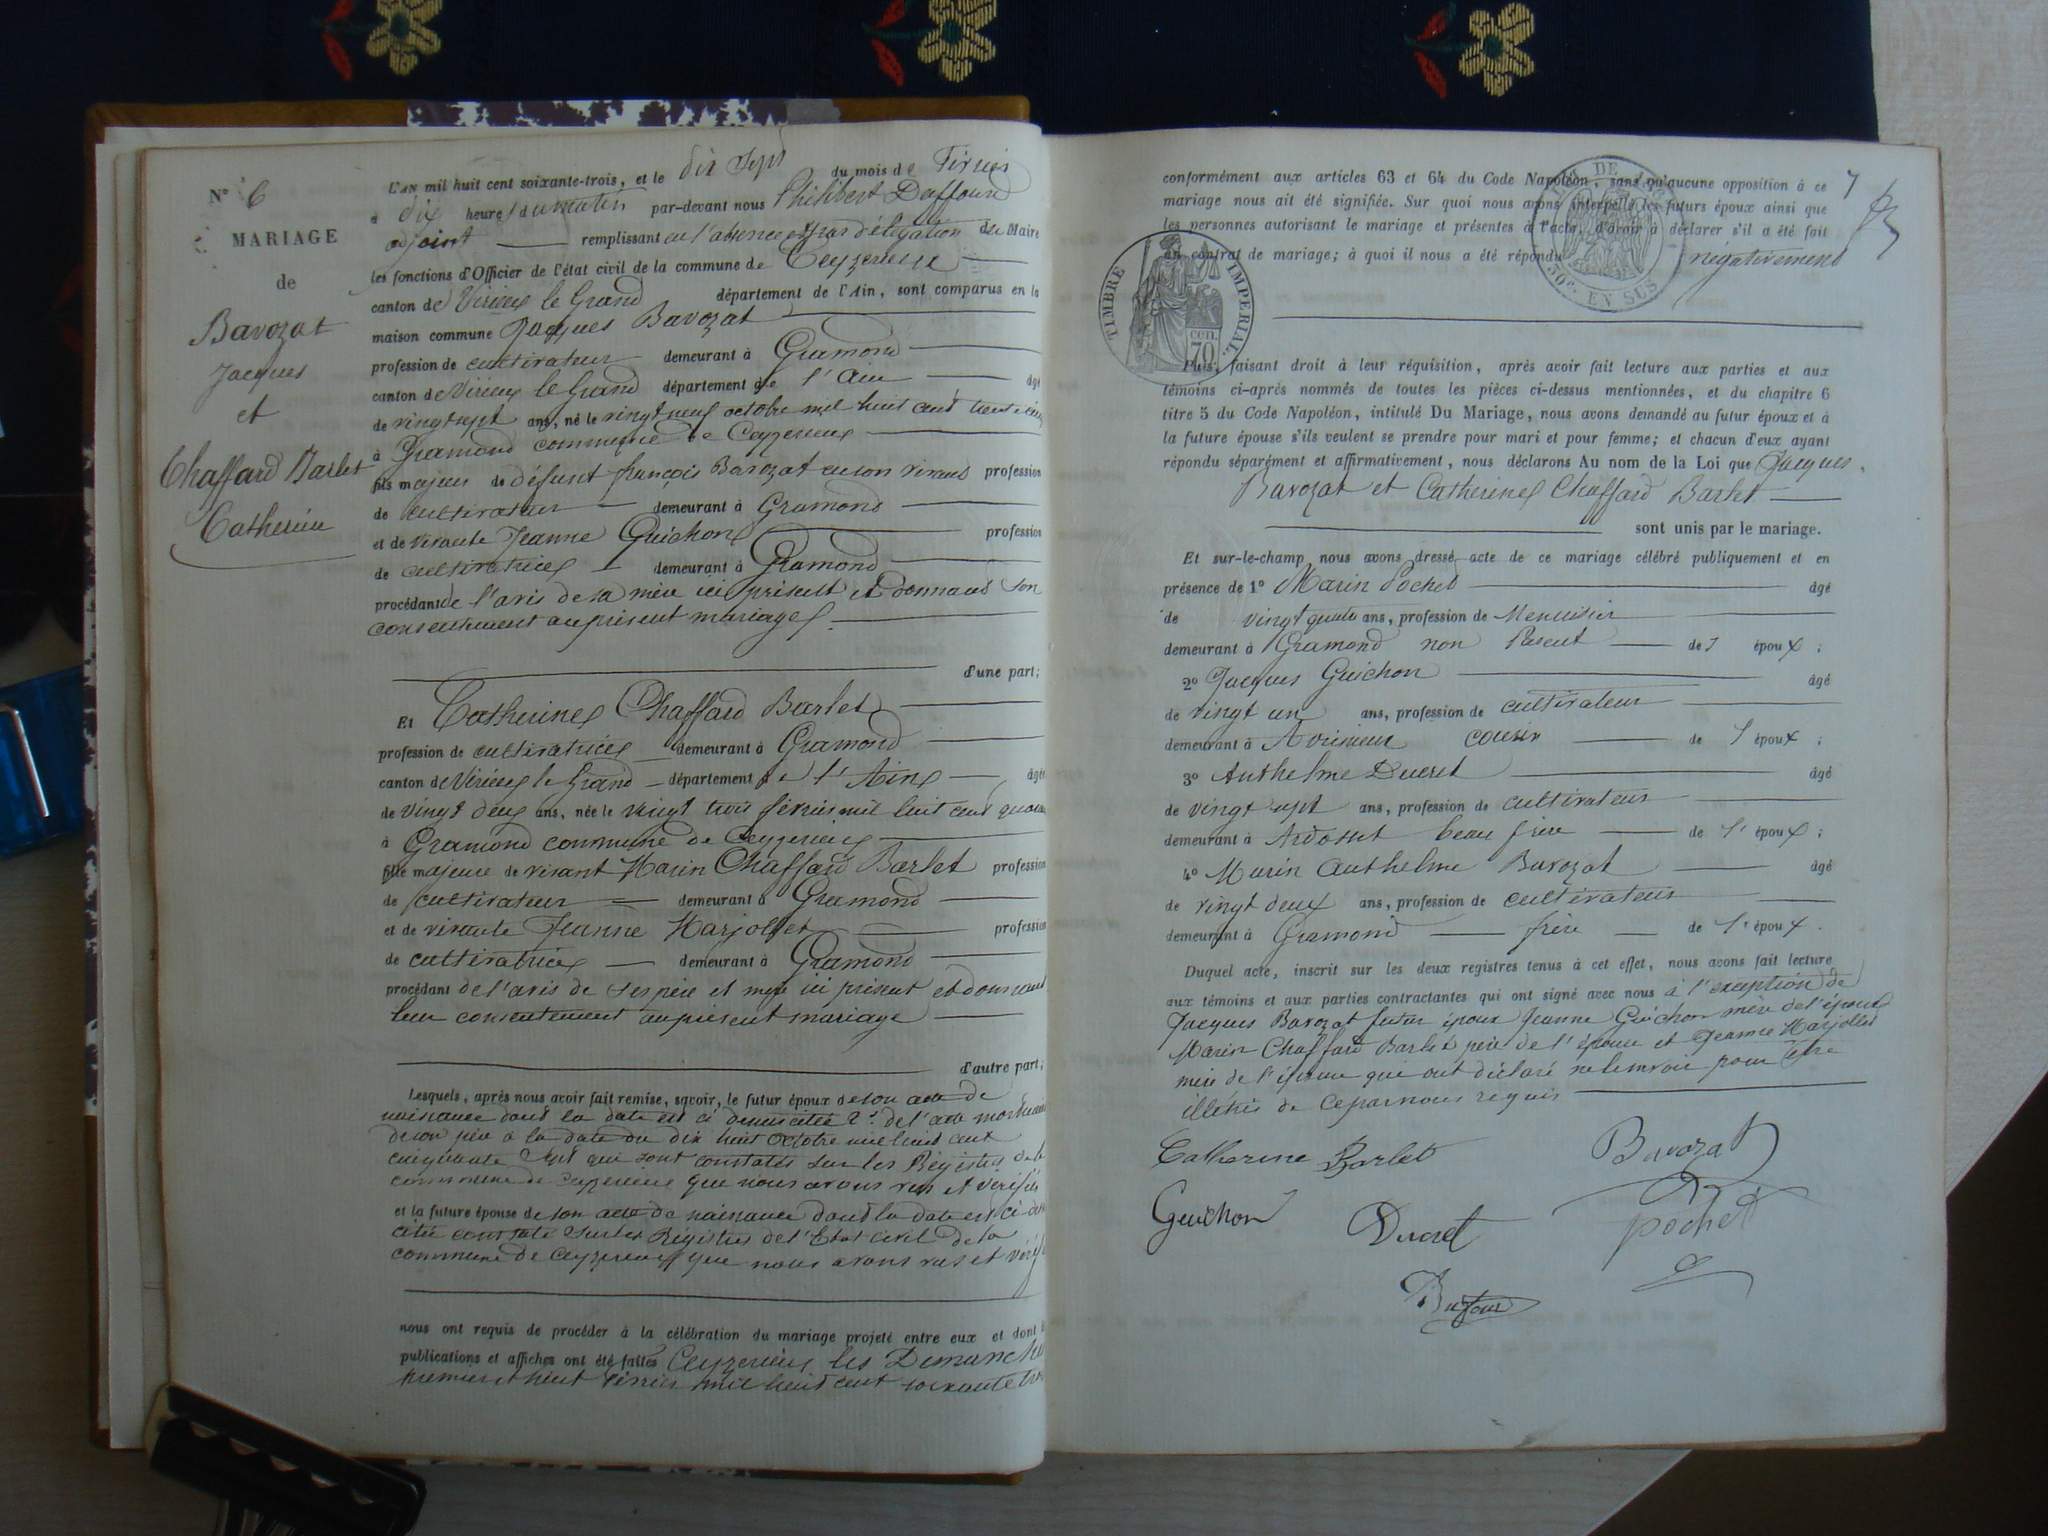 N° 6
MARIAGE
de
Bavozat
Jacques
et
Chaffard Barlet
Catherine
L'AN mil huit cent soixante-trois, et le dix Sept du mois de Février
à dix heures du matin par-devant nous Philibert Duffour
adjoint remplissant en l'absence et par délégation du Maire
les fonctions d'Officier de l'état civil de la commune de Ceyzerieux
canton de Virieux le Grand département de l'Ain, sont comparus en la
maison commune Jacques Bavozat
profession de cultivateur demeurant à Gramond
canton de Virieux le Grand département de l'Ain âgé
de vingt sept ans, né le vingt neuf octobre mil huit cent trente cinq
à Gramond commune de Ceyzerieux
fils majeur de défunt françois Bavozat en son vivant profession
de cultivateur demeurant à Gramond
et de vivante Jeanne Guichon profession
de cultivatrice demeurant à Gramond
procédant de l'avis de sa mère ici présent et donnant son
consentement au présent mariage
d'une part;
Et Catherine Chaffard Barlet
profession de cultivatrice demeurant à Gramond
canton de Virieux le Grand département de l'Ain âgée
de vingt deux ans, née le vingt trois février mil huit cent quarante
à Gramond commune de Ceyzerieux
fille majeure de vivant Marin Chaffard Barlet profession
de cultivateur demeurant à Gramond
et de vivante Jeanne Marjollet profession
de cultivatrice demeurant à Gramond
procédant de l'avis de ses père et mère ici présent et donnant
leur consentement au présent mariage
d'autre part;
Lesquels, après nous avoir fait remise, savoir, le futur époux de son acte de
naissance dont la date est ci dessus citée 2° de l'acte mortuaire
de son père à la date du dix huit octobre mil huit cent
cinquante Sept qui sont constatés sur les Régistres de la
commune de Ceyzerieux que nous avons vus et vérifiés
et la future épouse de son acte de naissance dont la date est ci dessus
citée constaté sur les Régistres de l'Etat civil de la
commune de Ceyzerieux que nous avons vus et vérifié
nous ont requis de procéder à la célébration du mariage projeté entre eux et dont les
publications et affiches ont été faites Ceyzerieux les Dimanche
premier et huit février mil huit cent soixante trois
7
conformément aux articles 63 et 64 du Code Napoléon, sans qu'aucune opposition à ce
mariage nous ait été signifiée. Sur quoi nous avons interpellé les futurs époux ainsi que
les personnes autorisant le mariage et présentes à l'acte, d'avoir à déclarer s'il a été fait
un contrat de mariage; à quoi il nous a été répondu négativement
50c. EN SUS
TIMBRE IMPERIAL.
CEN. 70
Puis, faisant droit à leur réquisition, après avoir fait lecture aux parties et aux
témoins ci-après nommés de toutes les pièces ci-dessus mentionnées, et du chapitre 6
titre 5 du Code Napoléon, intitulé Du Mariage, nous avons demandé au futur époux et à
la future épouse s'ils veulent se prendre pour mari et pour femme; et chacun d'eux ayant
répondu séparément et affirmativement, nous déclarons Au nom de la Loi que Jacques
Bavozat et Catherine Chaffard Barlet
sont unis par le mariage.
Et sur-le-champ nous avons dressé acte de ce mariage célébré publiquement et en
présence de 1° Marin Pochet âgé
de vingt quatre ans, profession de Menuisier
demeurant à Gramond non Parent des époux;
2° Jacques Guichon âgé
de vingt un ans, profession de cultivateur
demeurant à cousin de l'époux;
3° Anthelme Ducret âgé
de vingt sept ans, profession de cultivateur
demeurant à Ardosset beau frère de l'époux;
4° Marin Anthelme Bavozat âgé
de vingt deux ans, profession de cultivateur
demeurant à Gramond frère de l'époux.
Duquel acte, inscrit sur les deux registres tenus à cet effet, nous avons fait lecture
aux témoins et aux parties contractantes qui ont signé avec nous à l'exception de
Jacques Bavozat futur époux Jeanne Guichon mère de l'époux
Marin Chaffard Barlet père de l'épouse et Jeanne Marjollet
mère de l'épouse qui ont déclaré ne le savoir pour être
illétrés de ce par nous requis
Catherine Barlet Bavozat
Guichon Ducret Pochet
Duffour